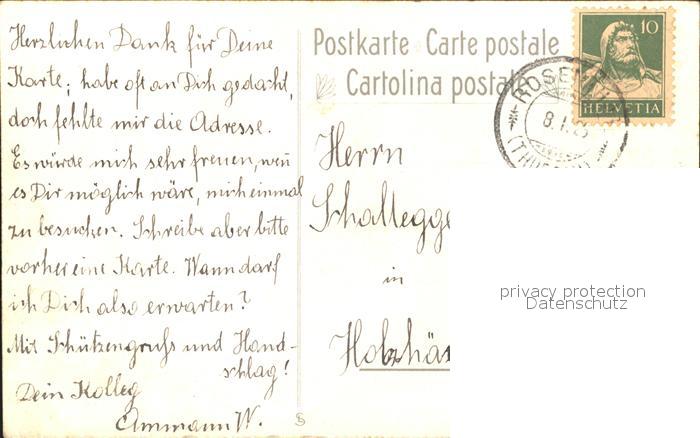 Herzlichen Dank für Deine
Karte; habe oft an Dich gedacht,
doch fehlte mir die Adresse.
Es würde mich sehr freuen, wen̄
es Dir möglich wäre, mich einmal
zu besuchen. Schreibe aber bitte
vorher eine Karte. Wann darf
ich Dich also erwarten?
Mit Schützengruss und Hand-
schlag!
Dein Kolleg
Ammann W.
Postkarte Carte postale
Cartolina postale
10
HELVETIA
ROSEN
8.I.
(THU
Herrn
Schallegge
in
Holzhäs
privacy protection
Datenschutz